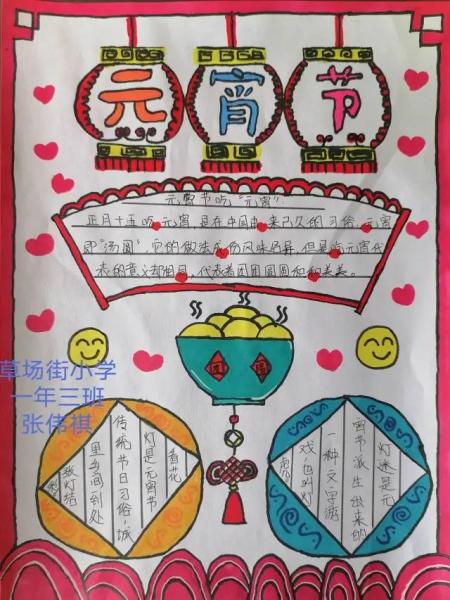 元宵节
元宵节吃"元宵"
正月十五吃元宵,是在中国由来已久的习俗,元宵
即"汤圆",它的做法成份风味各异,但是吃元宵代
表的意义却相同,代表着团团圆圆和和美美。
团 圆
草场街小学
一年三班
张伟祺
看花
灯是元宵节
传统节日习俗,城
里乡间到处
张灯结
灯谜是元
宵节派生出来的
一种文字游
戏,也叫灯